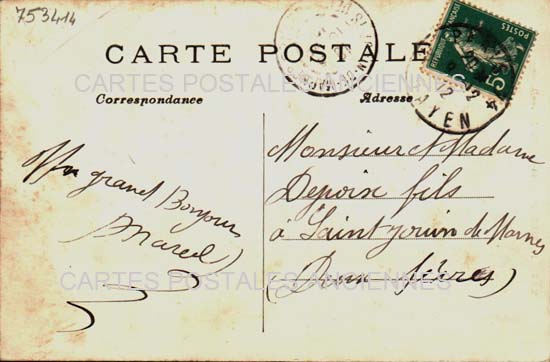 753414
CARTE POSTALE
CARTES POSTALES ANCIENNES
Correspondance
Adresse
5
AYEN
Un grand Bonjour
Marcel
Monsieur et Madame
Depoix fils
à Saint Jouin de Marnes
(Deux Sèvres)
CARTES POSTALES ANCIENNES